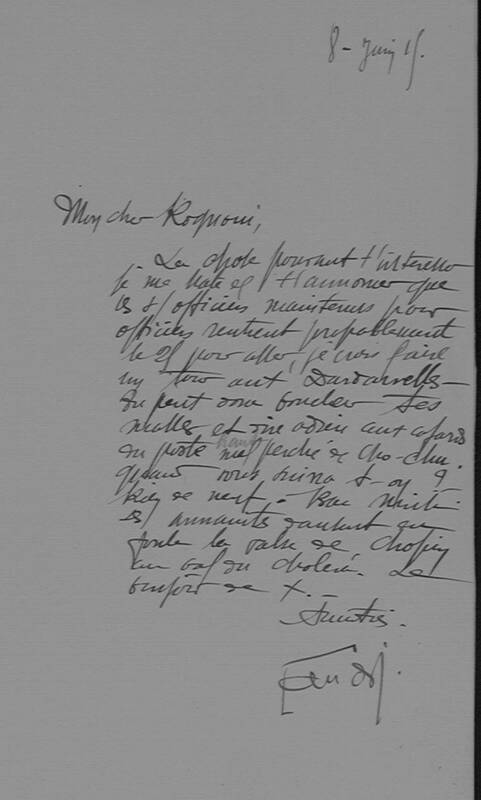 8 - Juin 15.
Mon cher Rognoni,
La chose pouvant t'intéresser
je me hâte de t'annoncer que
les officiers maintenus pour
officiers rentrent probablement
le 25 pour aller, je crois faire
un tour aux Dardanelles -
Tu peux donc boucler tes
malles et dire adieu aux
du poste haut perché de Cho-Chu.
Quand vous - on ?
Rien de neuf. - Bac Ninh
les annamites dansent en
foule la valse de Chopin
au du choléra. Le
de X. -
Amitiés.